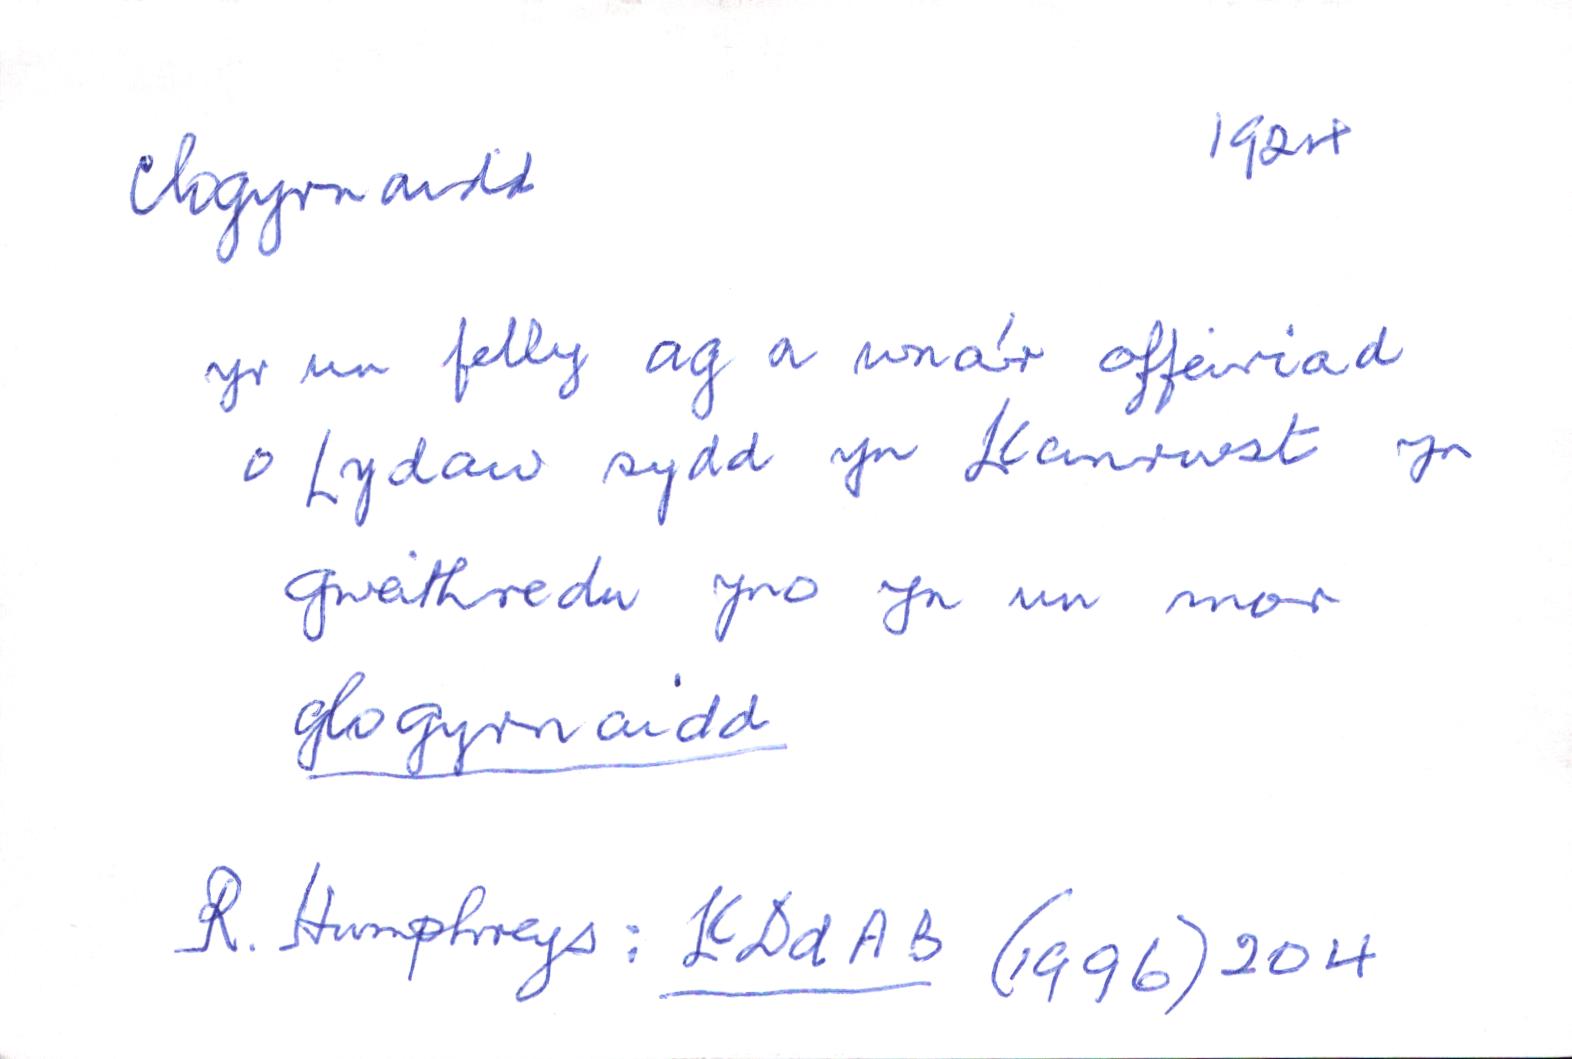 clogyrnaidd 1924
yr un felly ag a wna'r offeiriad
o Lydaw sydd yn Llanrwst yn
gweithredu yno yn un mor
glogyrnaidd
R. Humphreys: LlDdAB (1996) 204